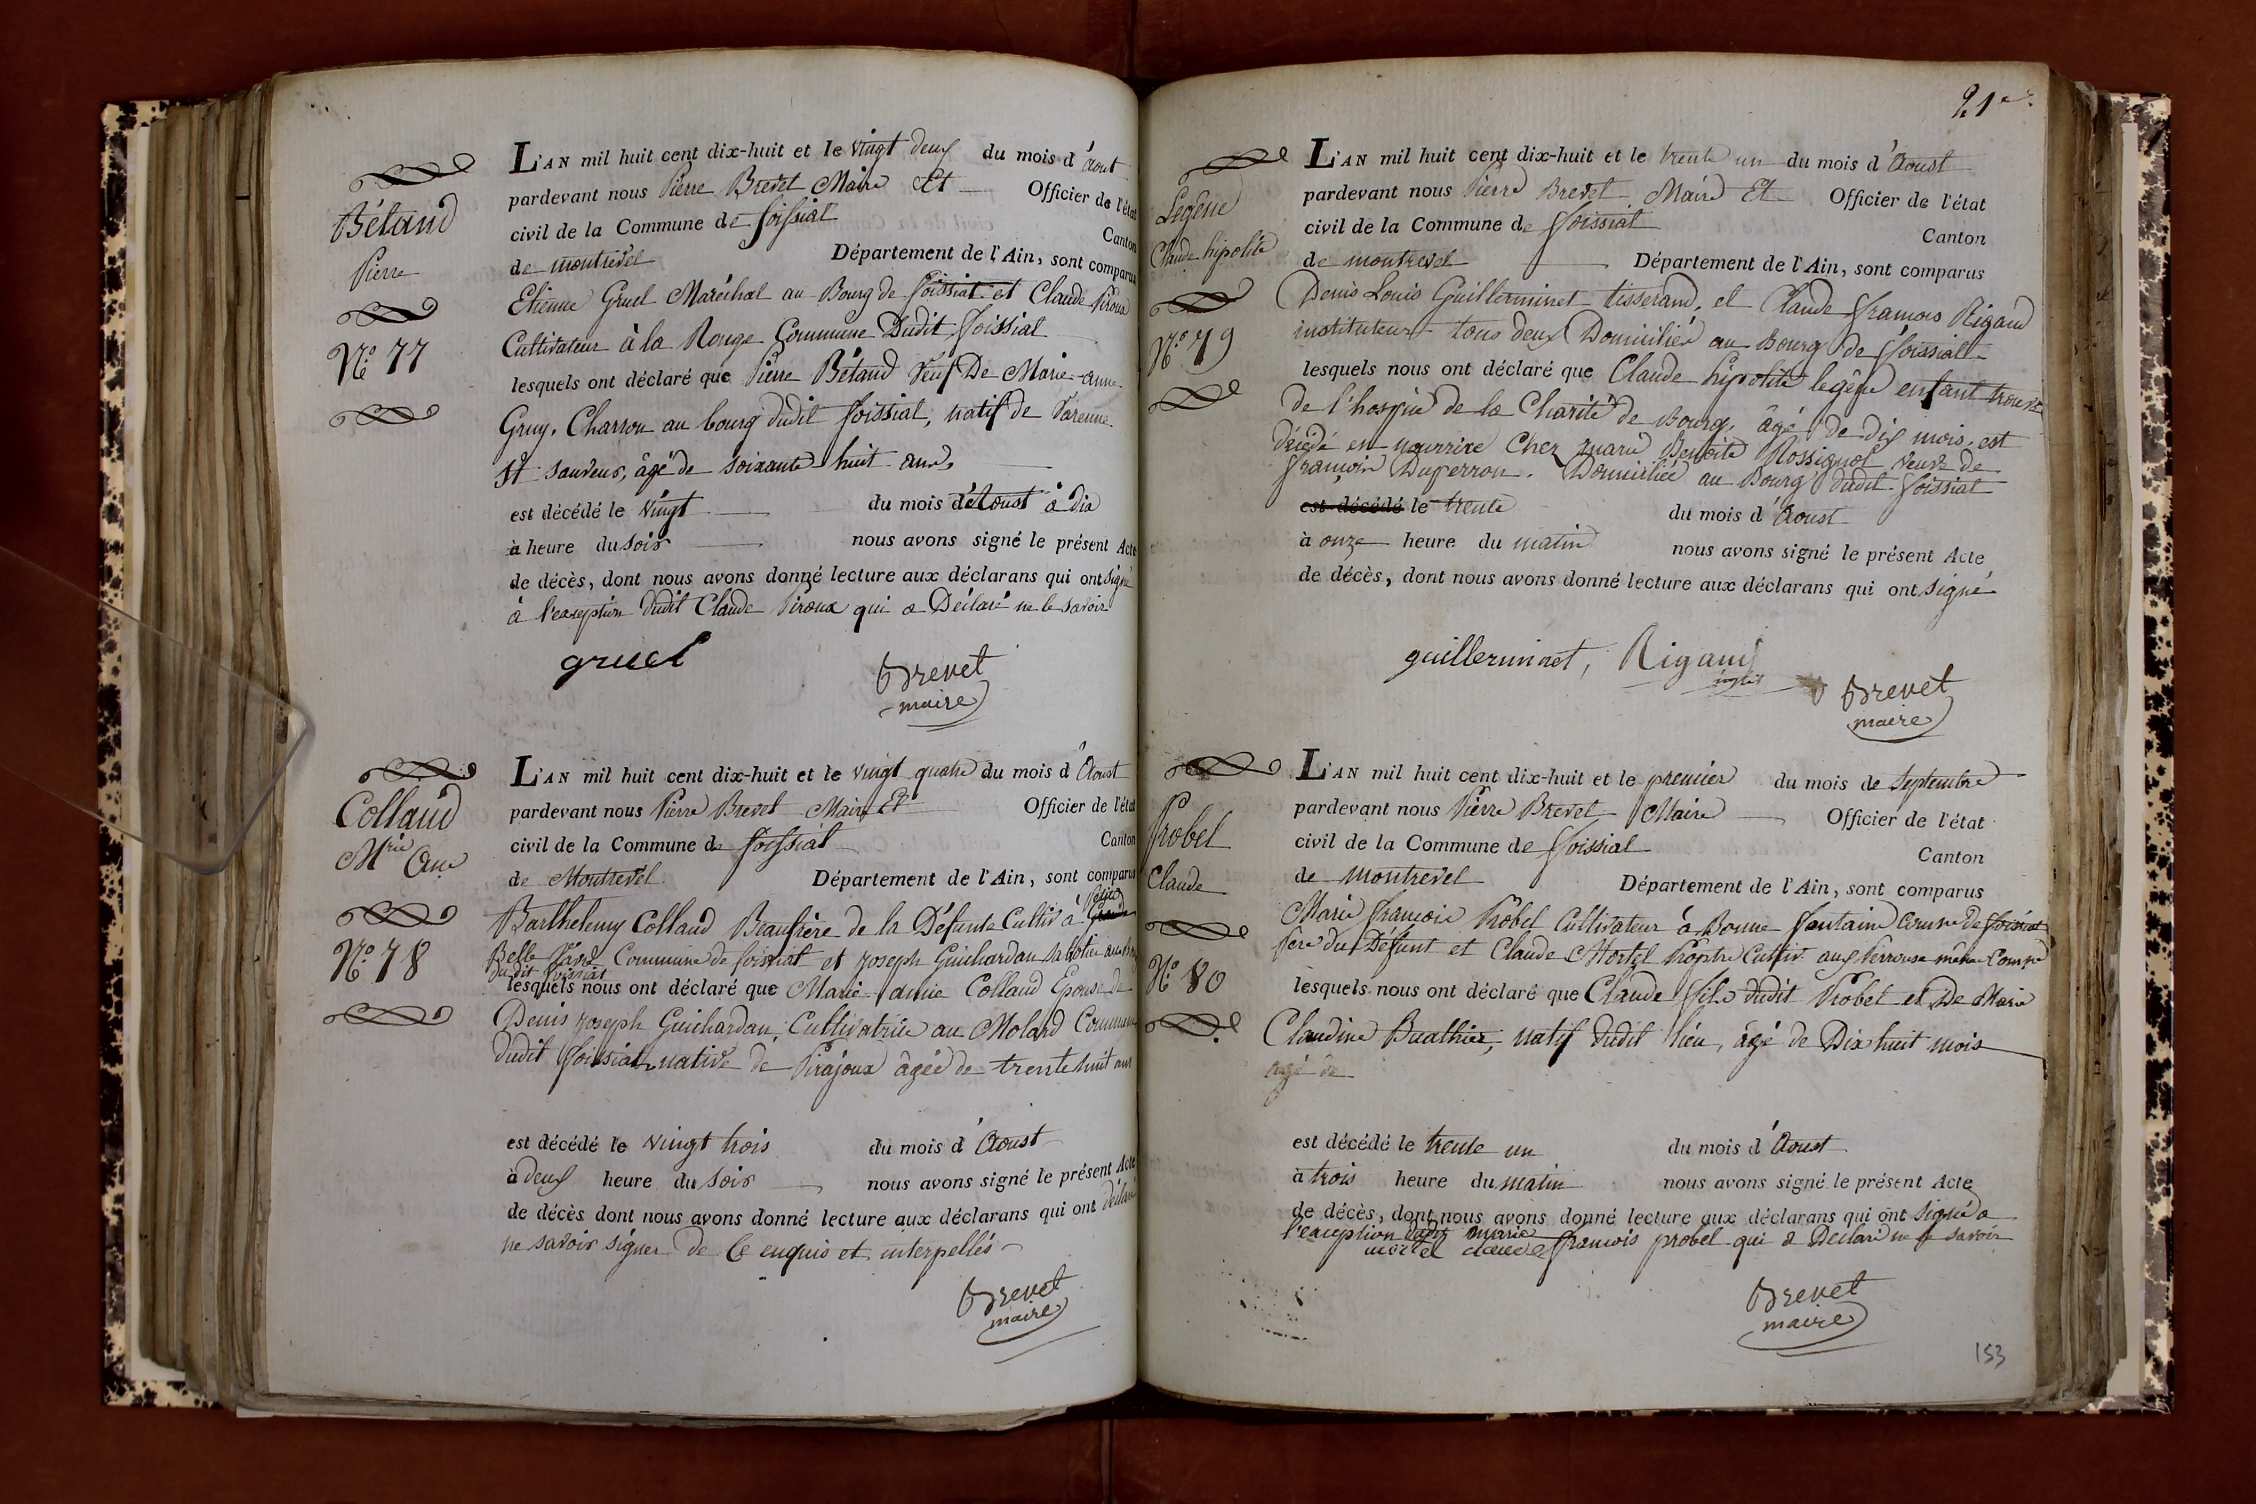 Bétand
Pierre
N.º 77
L'AN mil huit cent dix-huit et le vingt deux du mois d'aout
pardevant nous Pierre Brevet Maire Et Officier de l'état
civil de la Commune de foissiat
Canton
de montrevel Département de l'Ain, sont comparus
Etienne Gruel Maréchal au Bourg de foissiat et Claude Piroux
Cultivateur à la Rouge Commune Dudit foissiat
lesquels ont déclaré que Pierre Bétand Veuf De Marie-anne
Gruy, Charron au bourg dudit foissiat, natif de Varenne
St sauveur, âgé de soixante huit ans,
est décédé le vingt du mois d'Aoust à dix
à heure du soir nous avons signé le présent Acte
de décès, dont nous avons donné lecture aux déclarans qui ont signé
à l'exception dudit Claude Piroux qui a Déclaré ne le savoir
gruel
Brevet
maire
Collaud
Mrie Ane
N.º 78
L'AN mil huit cent dix-huit et le vingt quatre du mois d'Aoust
pardevant nous Pierre Brevet Maire Et Officier de l'état
civil de la Commune de foissiat
Canton
de Montrevel Département de l'Ain, sont comparus
Barthelemy Collaud Beaufrère de la Défunte Cultiv à Grande
Belle Commune de foissiat et Joseph Guichardan sabotier au
dudit foissiat
lesquels nous ont déclaré que Marie-anne Collaud Epouse de
Denis Joseph Guichardan, Cultivatrice au Molard Commune
dudit foissiat, native de Pirajoux âgée de trente huit ans
est décédé le vingt trois du mois d'Aoust
à deux heure du soir nous avons signé le présent Acte
de décès dont nous avons donné lecture aux déclarans qui ont déclaré
ne savoir signer de Ce enquis et interpellés
Brevet
maire
21e
Legêne
Claude hipolite
N.º 79
L'AN mil huit cent dix-huit et le trente un du mois d'Aoust
pardevant nous Pierre Brevet Maire Et Officier de l'état
civil de la Commune de foissiat
Canton
de montrevel Département de l'Ain, sont comparus
Denis Louis Guillerminet tisserand, et Claude francois Rigaud
instituteur tous deux Domiciliés au Bourg de foissiat
lesquels nous ont déclaré que Claude hipolite legêne enfant trouvé
de l'hospice de la Charité de Bourg, âgé de dix mois, est
décédé en nourrice Chez marie Benoite Rossignol veuve de
françois Duperron. Domiciliée au Bourg dudit foissiat
est décédé le trente du mois d'Aoust
à onze heure du matin nous avons signé le présent Acte
de décès, dont nous avons donné lecture aux déclarans qui ont signé
guillerminet, Rigaud
Brevet
maire
Probel
Claude
N.º 80
L'AN mil huit cent dix-huit et le premier du mois de Septembre
pardevant nous Pierre Brevet Maire Officier de l'état
civil de la Commune de foissiat
Canton
de montrevel Département de l'Ain, sont comparus
Marie francois Probel Cultivateur à Bonne fontaine Comune de foissiat
Père du Défunt et Claude Mortel Cultiv. aux Perrouse même Comune
lesquels nous ont déclaré que Claude fils dudit Probel et De Marie
Claudine Buathier, natif dudit lieu, âgé de Dix huit mois
agé de
est décédé le trente un du mois d'Aoust
à trois heure du matin nous avons signé le présent Acte
de décès, dont nous avons donné lecture aux déclarans qui ont signé a
l'exception dudit marie
mortel claude francois probel qui a Déclaré ne le savoir
Brevet
maire
153